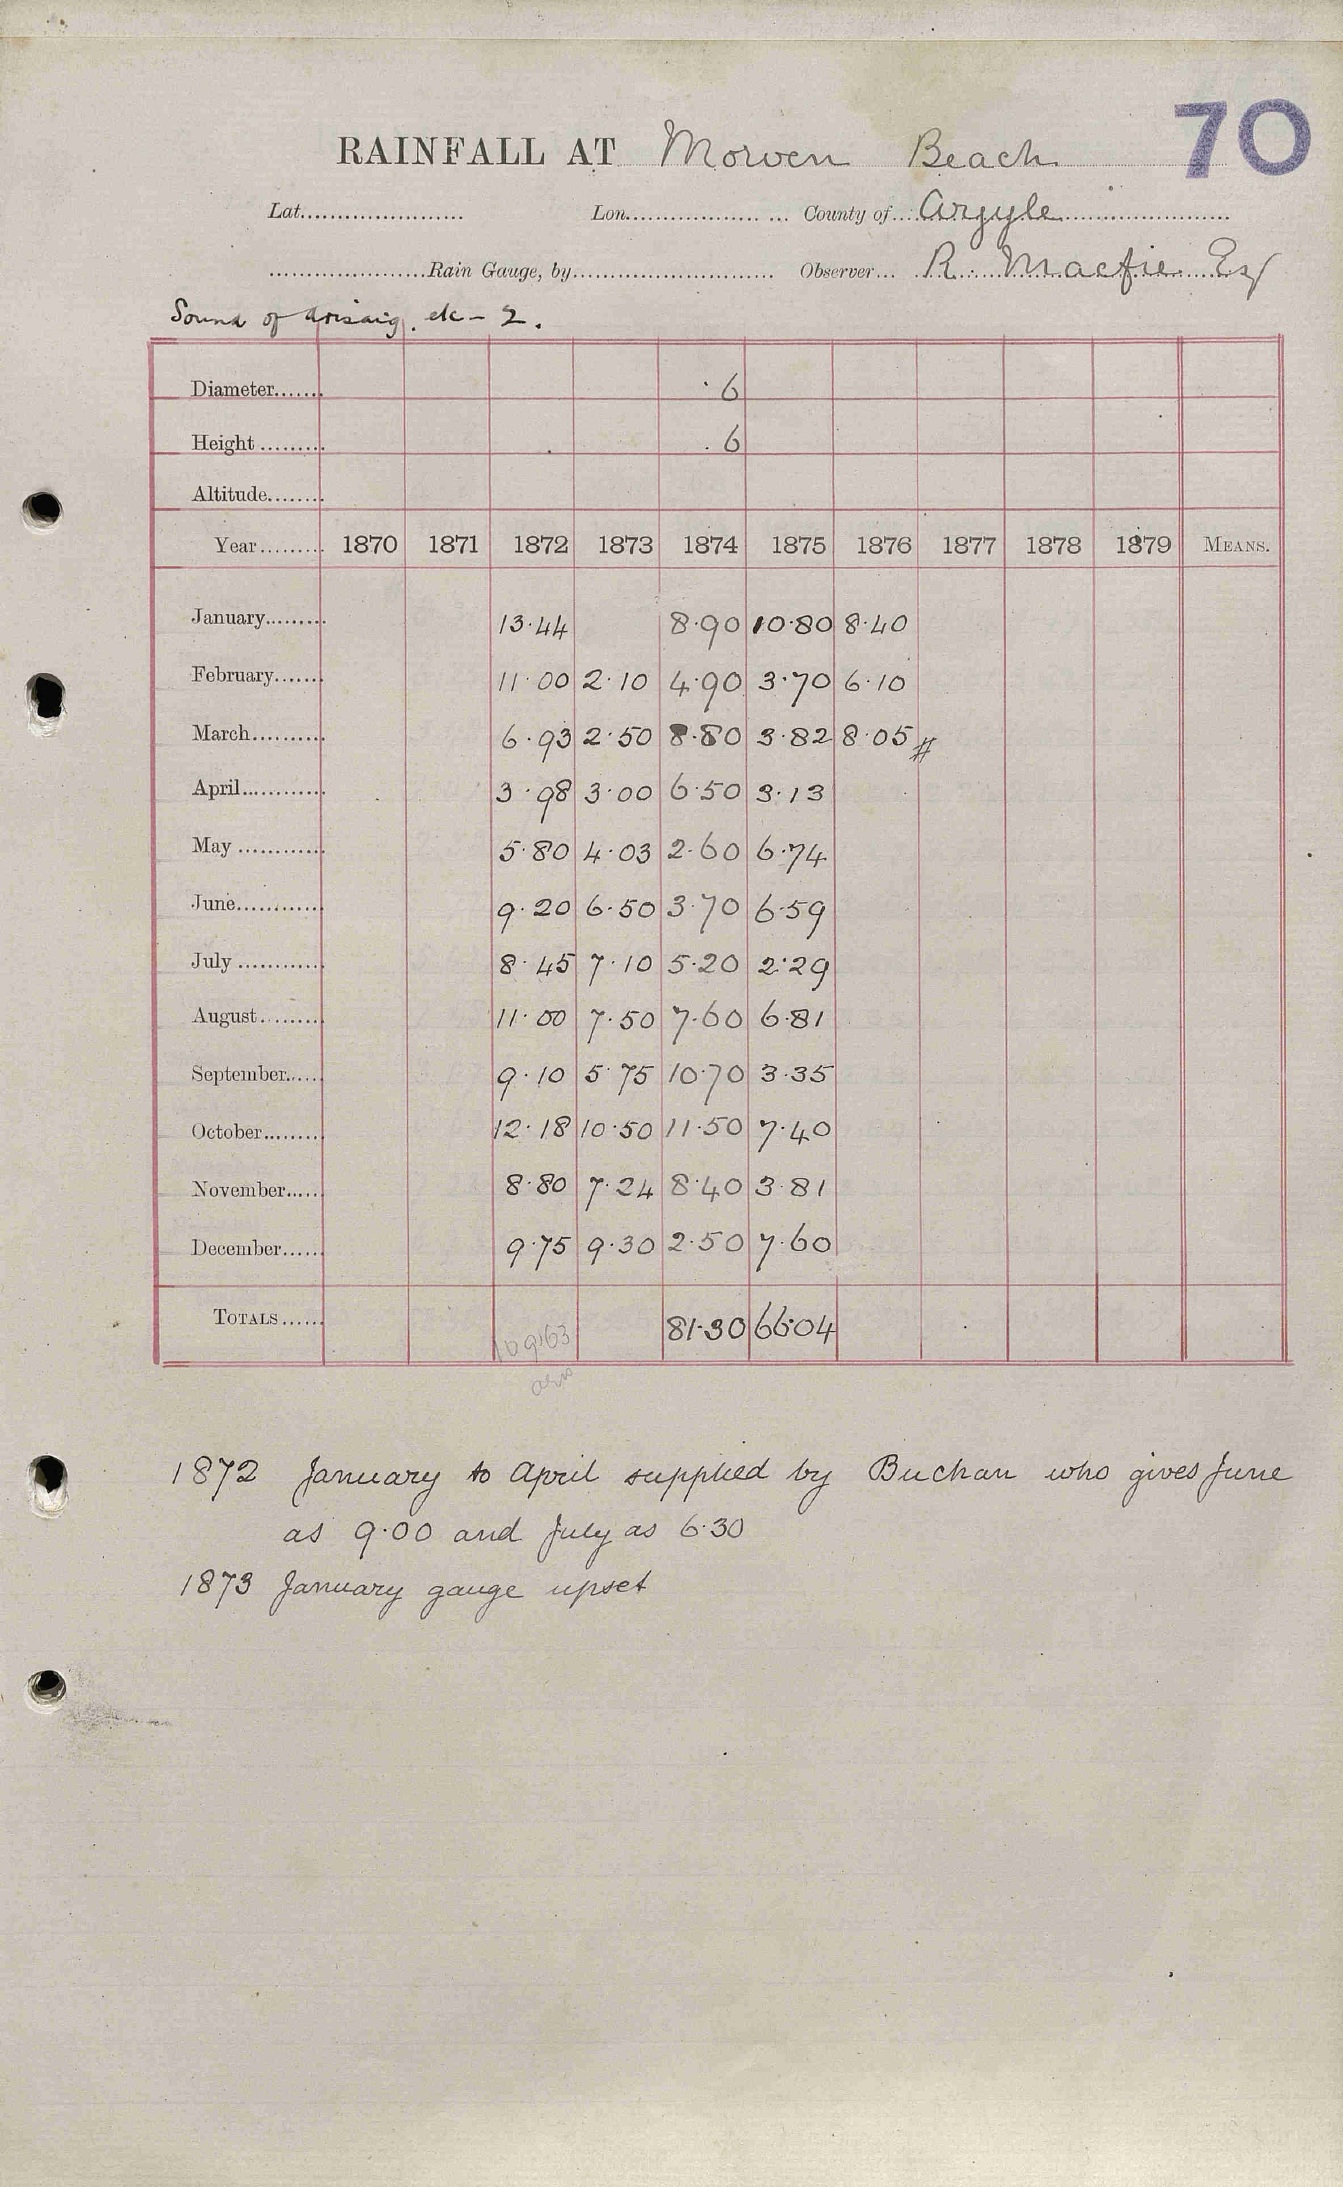 70
RAINFALL AT Morven Beach
Lat...................... Lon.................. ... County of... Argyle
.....................Rain Gauge, by........................... Observer... R. Macfie Esq
Sound of Arisaig, etc - 2.
Diameter....... 6
Height ......... 6
Altitude........
Year......... 1870 1871 1872 1873 1874 1875 1876 1877 1878 1879 MEANS.
January......... 13.44 8.90 10.80 8.40
February....... 11.00 2.10 4.90 3.70 6.10
March.......... 6.93 2.50 8.80 3.82 8.05 #
April............ 3.98 3.00 6.50 3.13
May ............ 5.80 4.03 2.60 6.74
June............ 9.20 6.50 3.70 6.59
July ............ 8.45 7.10 5.20 2.29
August......... 11.00 7.50 7.60 6.81
September..... 9.10 5.75 10.70 3.35
October........ 12.18 10.50 11.50 7.40
November..... 8.80 7.24 8.40 3.81
December..... 9.75 9.30 2.50 7.60
TOTALS...... 109.63 81.30 66.04
1872 January to April supplied by Buchan who gives June
as 9.00 and July as 6.30
1873 January gauge upset